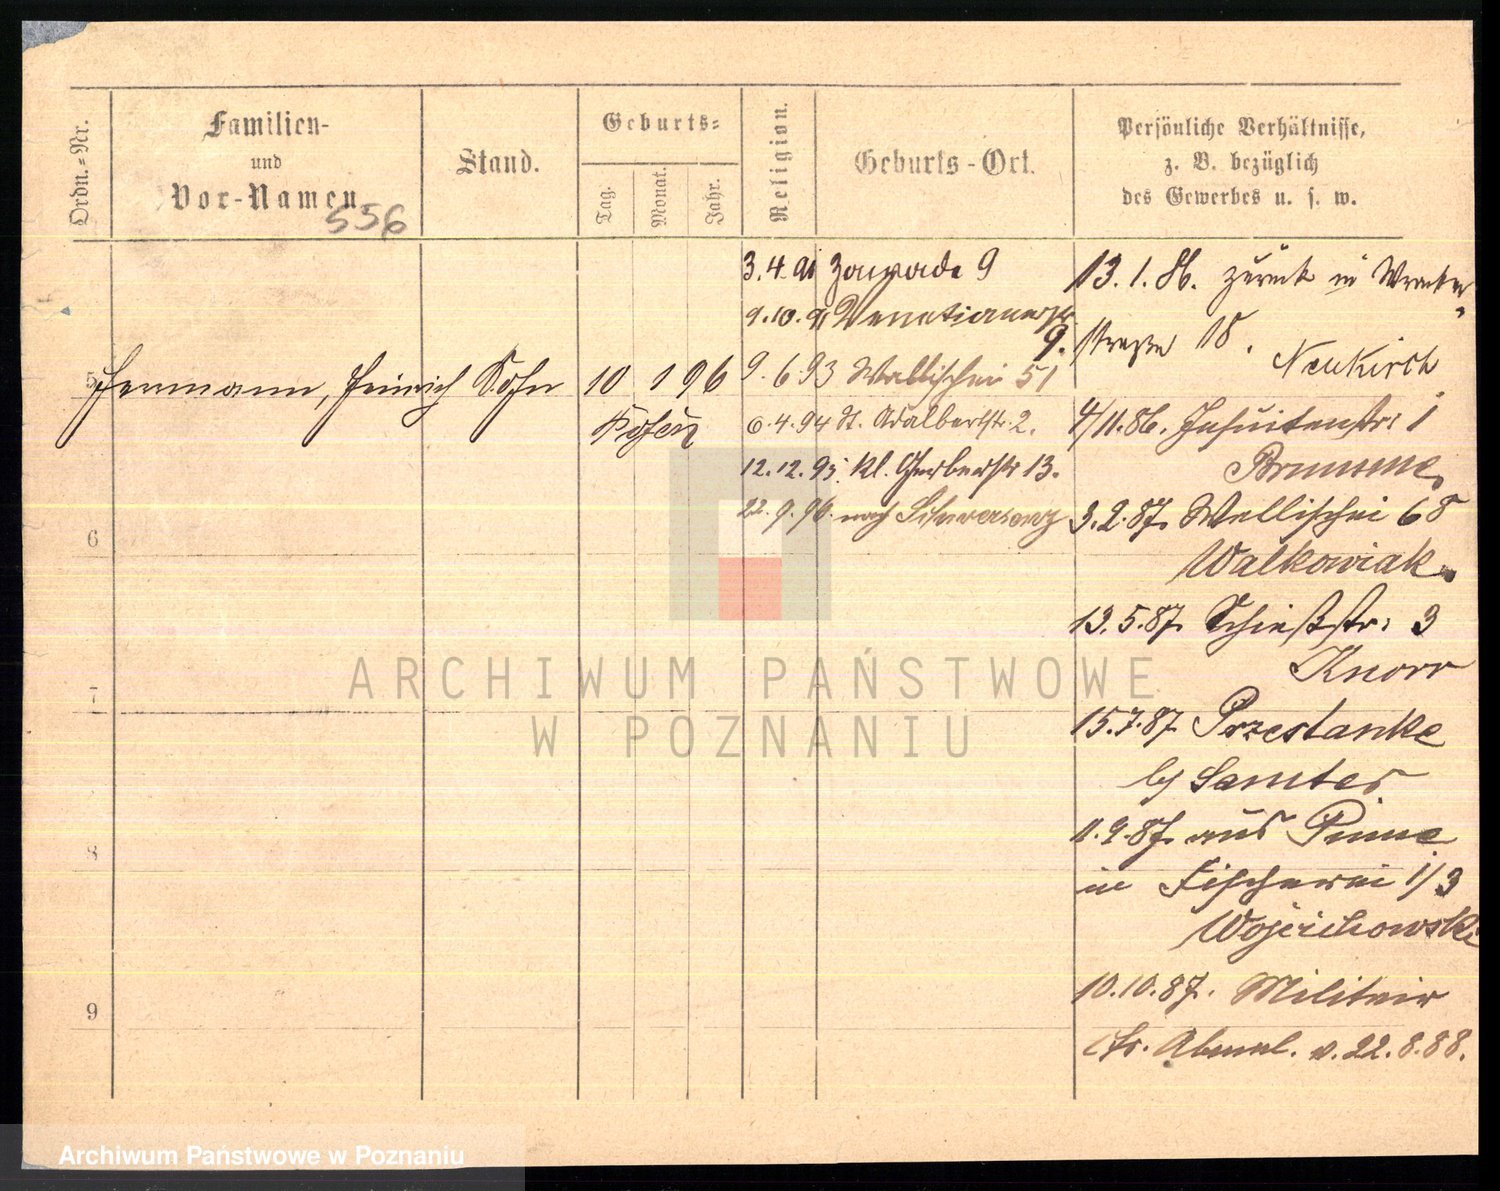 Ordn.-Nr.
Familien-
und
Vor-Namen
556
Stand.
Geburts-
Tag.
Monat.
Jahr.
Religion.
Geburts-Ort.
Persönliche Verhältnisse,
z. B. bezüglich
des Gewerbes u. s. w.
5
Hermann, Heinrich Sohn
10 1 96
Posen
6
7
8
9
3.4.91 Zawade 9
9.10.91 Venetianerstr
9.
9.6.93 Wallischei 51
6.4.94 St. Adalbertstr. 2.
12.12.95. kl. Gerberstr 13.
22.9.96. nach Schwersenz
13.1.86. zurück in
straße 18.
Neukirch
4/11.86. Jesuitenstr: 1
Brumme.
3.2.87. Wallischei 68
Walkowiak.
13.5.87. Schießstr: 3
Knorr
15.7.87. Przestanke
by Samter
11.9.87. aus Pinne
in Fischerei 1/3
Wojciechowski
10.10.87. Militair
Abmel. v. 22.8.88.
ARCHIWUM PAŃSTWOWE
W POZNANIU
Archiwum Państwowe w Poznaniu